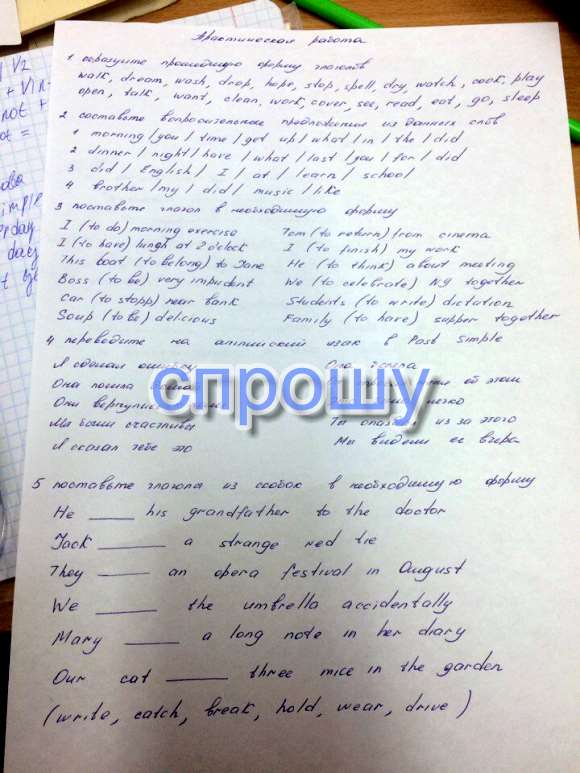 Практическая работа
1 образуйте прошедшую форму глаголов
walk, dream, wash, drop, hope, stop, spell, dry, watch, cook, play
open, talk, want, clean, work, cover, see, read, eat, go, sleep
2 составьте вопросительные предложения из данных слов
1 morning / you / time / get up / what / in / the / did
2 dinner / night / have / what / last / you / for / did
3 did / English / I / at / learn / school
4 brother / my / did / music / like
3 поставьте глагол в необходимую форму
I (to do) morning exercise Tom (to return) from cinema
I (to have) lungh at 2 o'clock I (to finish) my work
This boat (to belong) to Jane He (to think) about meeting
Boss (to be) very impudent We (to celebrate) NY together
Car (to stopp) near bank Students (to write) dictation
Soup (to be) delicious Family (to have) supper together
4 переведите на английский язык в Past Simple
Я сделал ошибку Она
Она пошла ей этот
Они вернулись
спрошу
Мы были счастливы Ты из за этого
Я сказал тебе это Мы видели ее вчера
5 поставьте глаголы из скобок в необходимую форму
He ____ his grandfather to the doctor
Jack ____ a strange red tie
They ____ an opera festival in August
We ____ the umbrella accidentally
Mary ____ a long note in her diary
Our cat ____ three mice in the garden
(write, catch, break, hold, wear, drive)